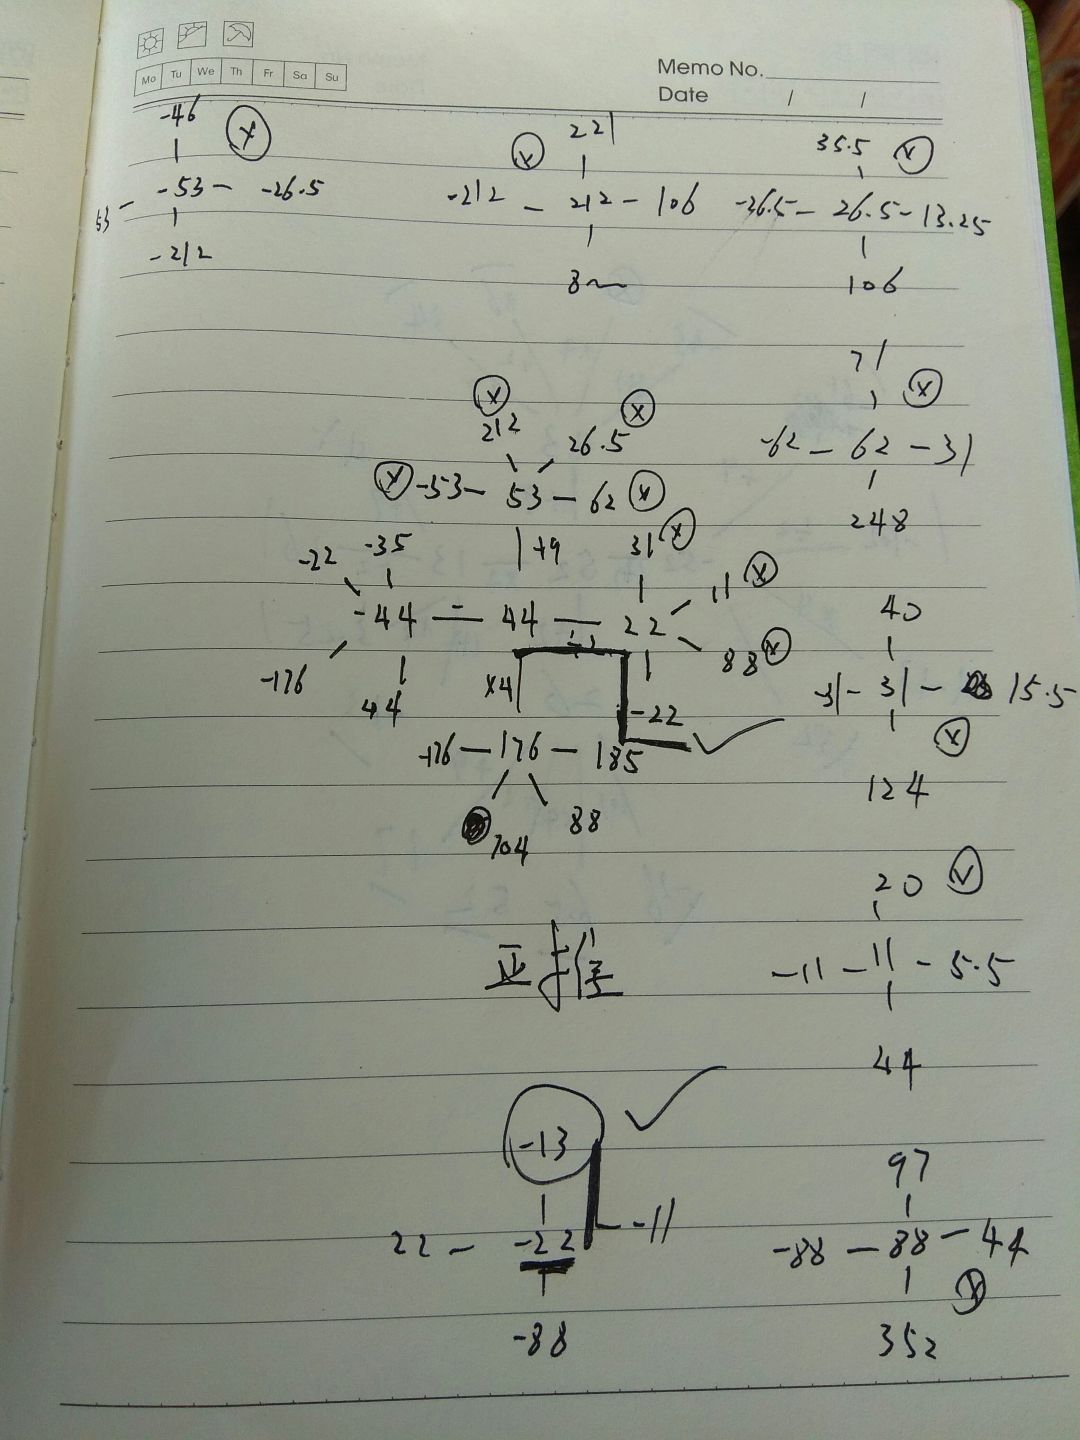 Mo Tu We Th Fr Sa Su
Memo No.
Date / /
-46
-53 - -26.5
53 -
-212
221
-212 - 212 - 106
35.5
-26.5 - 26.5 - 13.25
106
71
-62 - 62 - 31
248
212
26.5
-53 - 53 - 62
+9
31
-22
-35
11
-44 - 44 - 22
88
-176
44
×4
-22
-176 - 176 - 185
704
88
40
-31 - 31 - 15.5
124
20
-11 - 11 - 5.5
44
-13
22 - -22 - -11
-88
97
-88 - 88 - 44
352